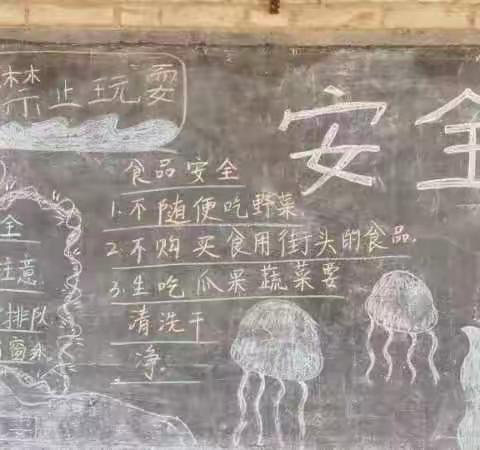 禁止玩耍
安全
食品安全
1.不随便吃野菜.
2.不购买食用街头的食品.
3.生吃瓜果蔬菜要
清洗干
净.
全
注意
排队
窗